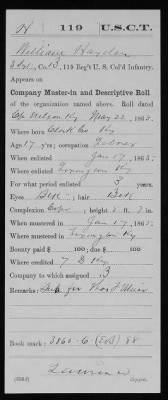 H | 119 | U.S.C.T.
William Hayden
, Co. B, 119 Reg't U. S. Col'd Infantry.
Appears on
Company Muster-in and Descriptive Roll
of the organization named above. Roll dated
Cp. Nelson Ky May 22, 1865.
Where born Clark Co. Ky
Age 17 y'rs; occupation Laborer
When enlisted Jan 17, 1865.
Where enlisted Lexington Ky
For what period enlisted 3 years.
Eyes Blk; hair Blk
Complexion; height 5 ft. in.
When mustered in Jan 17, 1865.
Where mustered in Lexington Ky
Bounty paid $ 100; due $ 100
Where credited 7 D Ky
Company to which assigned
Remarks: Sub for Thos
Book mark: